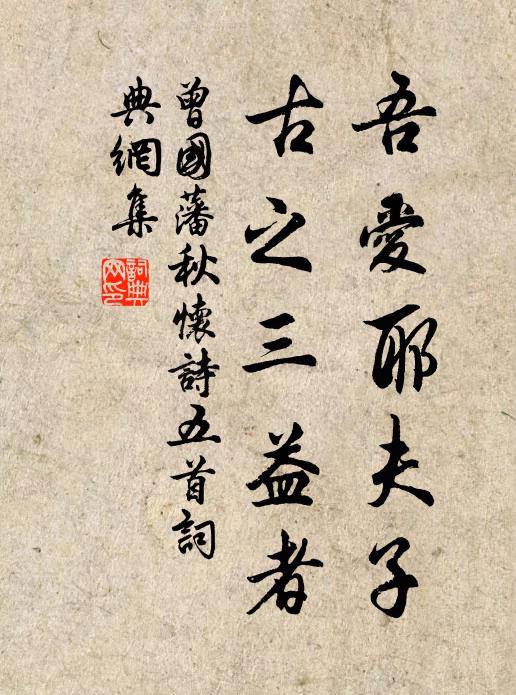 吾愛耶夫子
古之三益者
曾國藩秋懷詩五首詞
典網集
詞典
网印